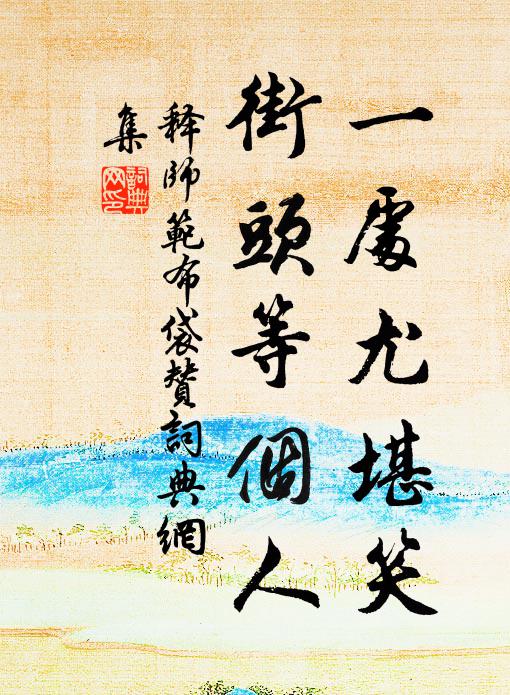 一處尤堪笑
街頭等個人
释師範布袋赞詞典網
集
詞典網印